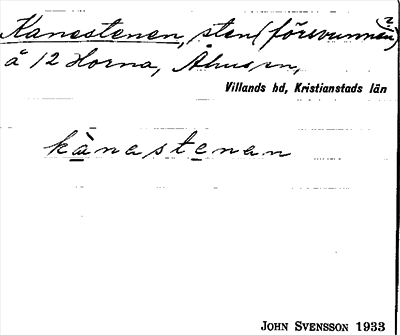 Kanestenen, sten (försvunnen?)
å 12 Horna, Åhus sn,
Villands hd, Kristianstads län
kànastenan
JOHN SVENSSON 1933